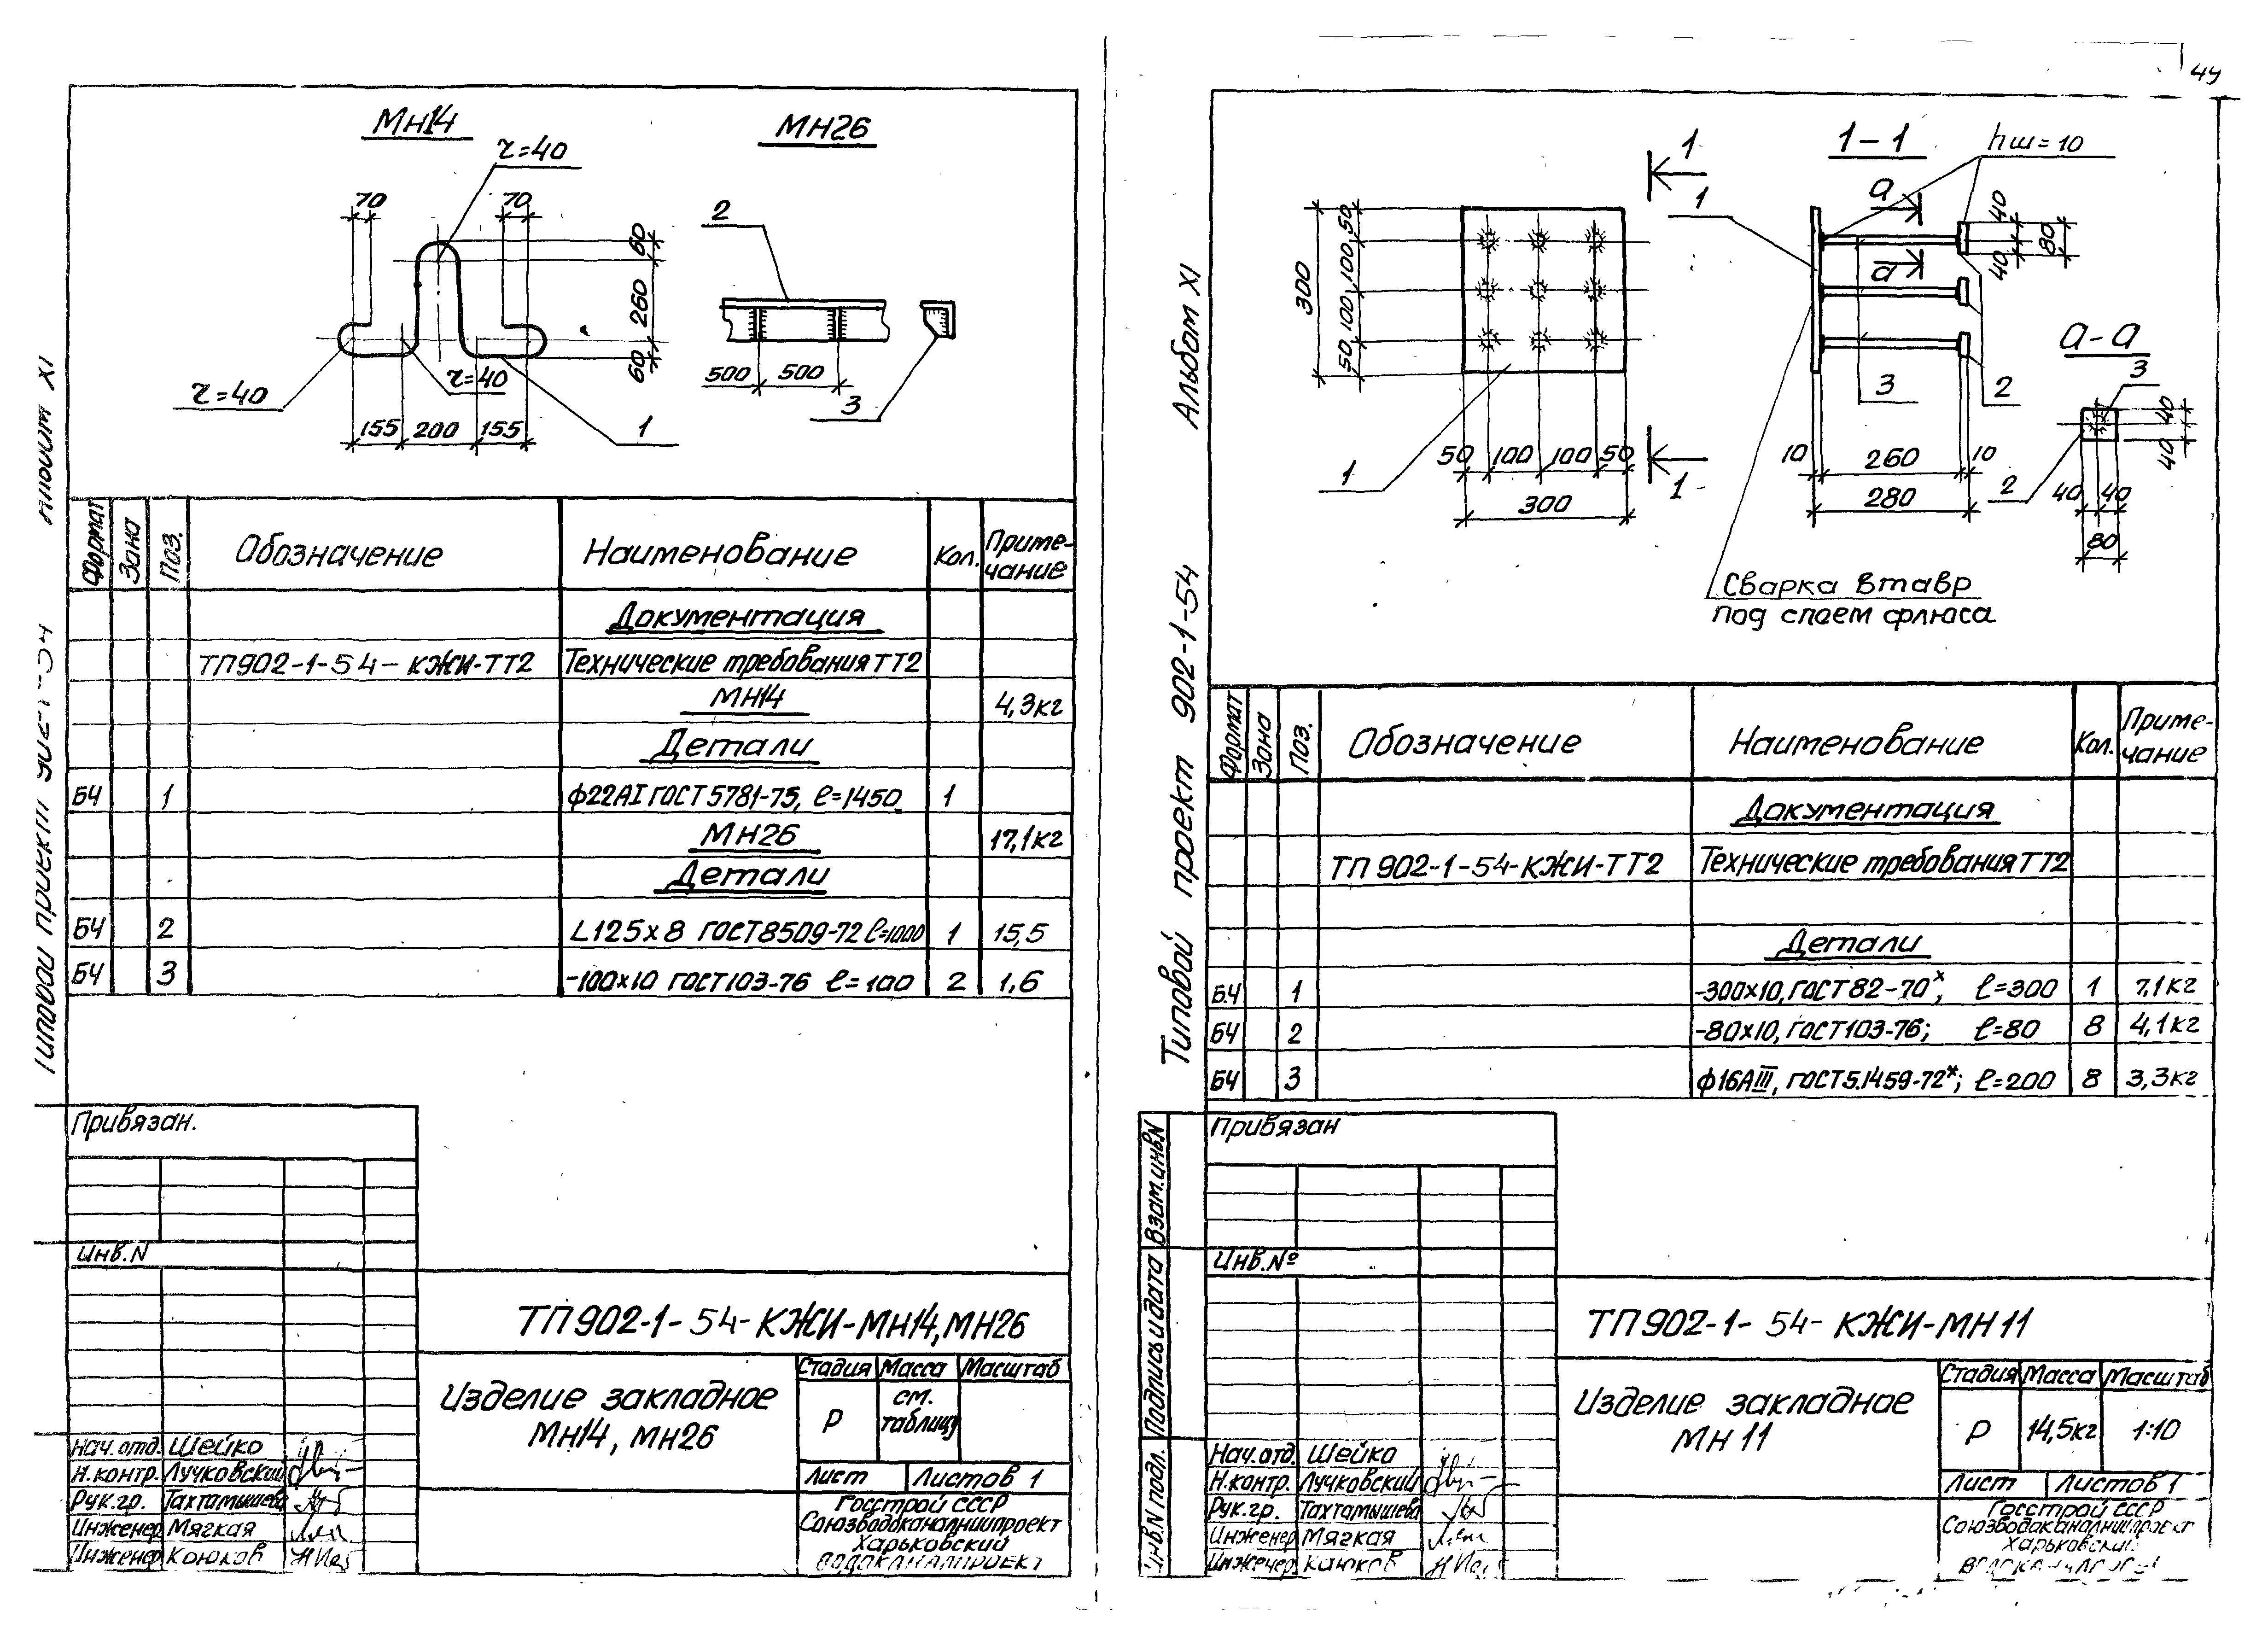 44
Альбом XI
Типовой проект 902-1-54
Мн14
МН26
r=40
70
70
60
260
60
r=40
r=40
155 200 155
1
2
500 500
3
Формат
Зона
Поз.
Обозначение
Наименование
Кол.
Приме-
чание
Документация
ТП902-1-54-КЖИ-ТТ2 Технические требования ТТ2
МН14 4,3кг
Детали
БЧ 1 ф22АI ГОСТ 5781-75, ℓ=1450 1
МН26 17,1кг
Детали
БЧ 2 L125х8 ГОСТ8509-72 ℓ=1000 1 15,5
БЧ 3 -100х10 ГОСТ103-76 ℓ=100 2 1,6
Привязан.
Инв.N
ТП902-1-54-КЖИ-МН14,МН26
Изделие закладное
Мн14, Мн26
Стадия Масса Масштаб
Р см.
таблицу
Лист Листов 1
Нач.отд. Шейко
Н.контр. Лучковский
Рук.гр. Тахтамышева
Инженер Мягкая
Инженер Каюков
Госстрой СССР
Союзводоканалниипроект
Харьковский
ВОДОКАНАЛПРОЕКТ
Альбом XI
Типовой проект 902-1-54
1
1-1
hш=10
1
а
а
40
40
80
300
50
100
100
50
1
50 100 100 50
300
1
3
2
10 260 10
280
а-а
3
40
40
2
40 40
80
Сварка втавр
под слоем флюса
Формат
Зона
Поз.
Обозначение
Наименование
Кол.
Приме-
чание
Документация
ТП 902-1-54-КЖИ-ТТ2 Технические требования ТТ2
Детали
БЧ 1 -300х10, ГОСТ 82-70ˣ, ℓ=300 1 7,1кг
БЧ 2 -80х10, ГОСТ103-76; ℓ=80 8 4,1кг
БЧ 3 ф16АIII, ГОСТ5.1459-72*; ℓ=200 8 3,3кг
Взам.инв.N
Подпись и дата
Инв.N подл.
Привязан
Инв.№
ТП902-1-54-КЖИ-МН11
Изделие закладное
Мн 11
Стадия Масса Масштаб
Р 14,5кг 1:10
Лист Листов 1
Нач.отд. Шейко
Н.контр. Лучковский
Рук.гр. Тахтамышева
Инженер Мягкая
Инженер Каюков
Госстрой СССР
Союзводоканалниипроект
Харьковский